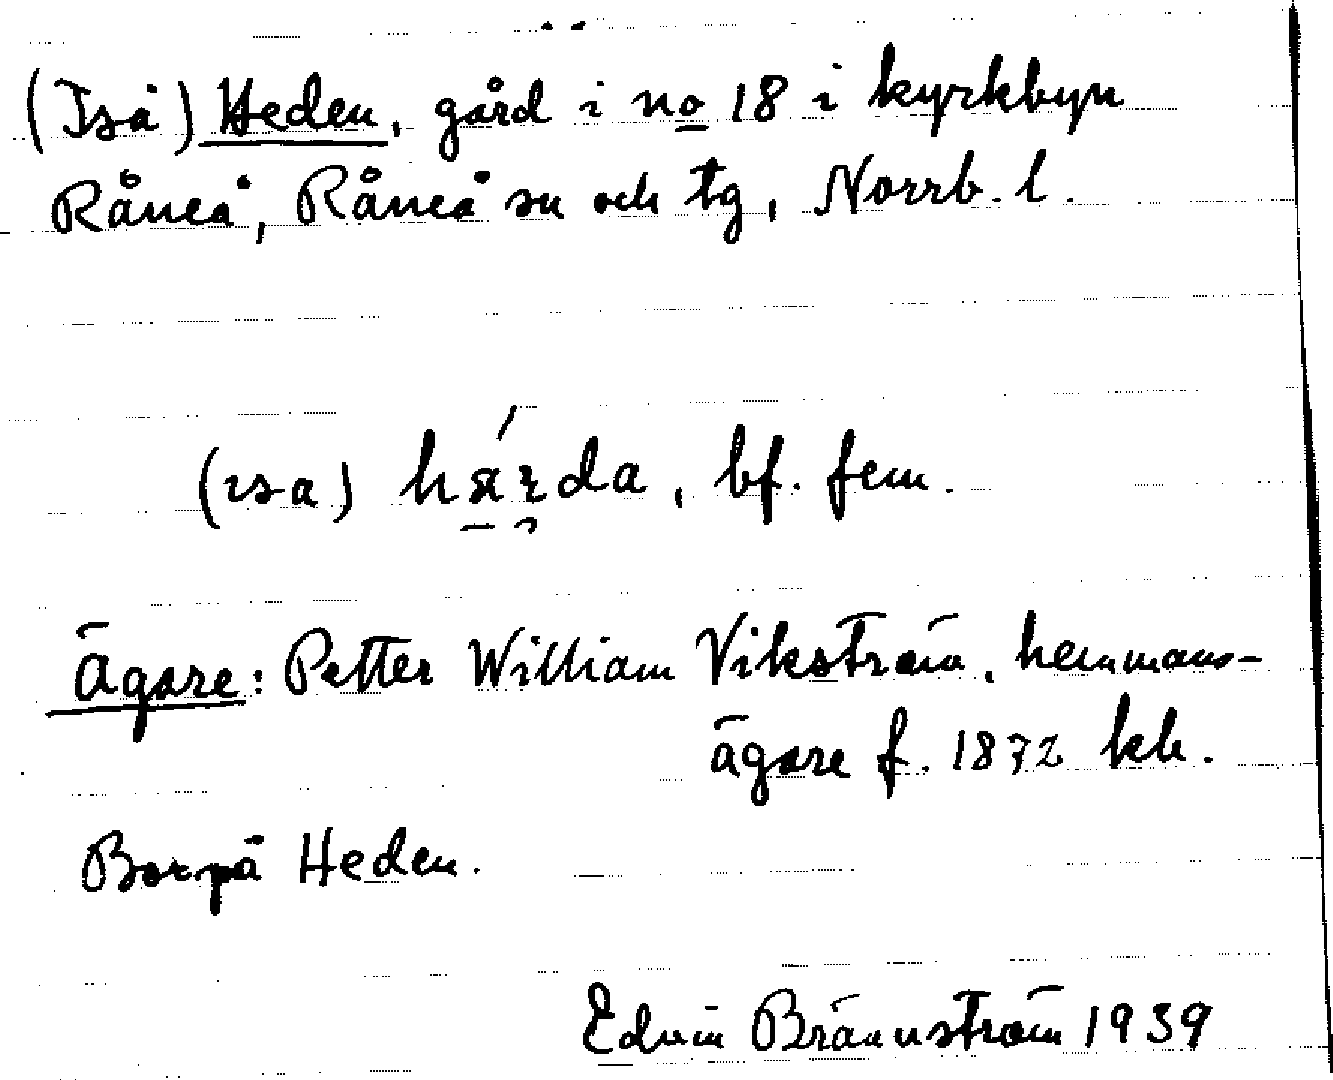 (Iså) Heden, gård i no 18 i kyrkbyn
Råneå, Råneå sn och tg, Norrb. l.
(ısa) , bf. fem.
Ägare: Petter William Vikström, hemmans-
ägare f. 1872 kb.
Bor på Heden.
Edvin Brännström 1939